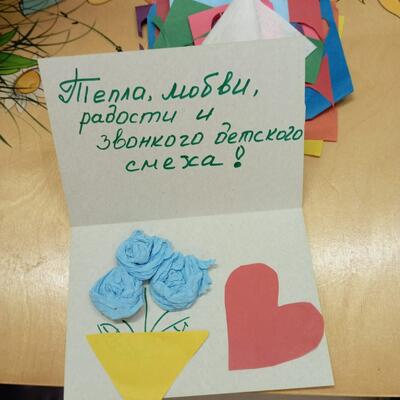 Тепла, любви,
радости и
звонкого детского
смеха!